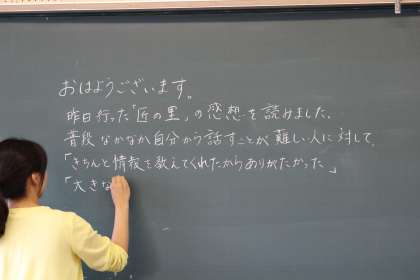 おはようございます。
昨日行った「匠の里」の感想を読みました。
普段なかなか自分から話すことが難しい人に対して、
「きちんと情報を教えてくれたからありがたかった」
「大きな